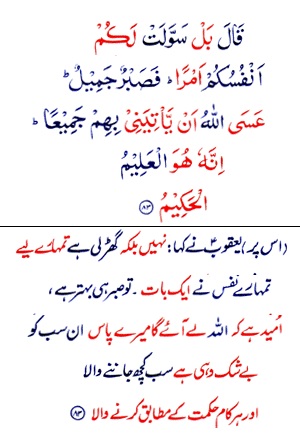 قَالَ بَلْ سَوَّلَتْ لَكُمْ
اَنْفُسُكُمْ اَمْرًا ؕ فَصَبْرٌ جَمِيْلٌ ؕ
عَسَى اللّٰهُ اَنْ يَّاْتِيَنِيْ بِهِمْ جَمِيْعًا ؕ
اِنَّهٗ هُوَ الْعَلِيْمُ
الْحَكِيْمُ ﴿۸۳﴾
(اس پر) یعقوبؑ نے کہا: نہیں بلکہ گھڑ لی ہے تمہارے لیے
تمہارے نفس نے ایک بات۔ تو صبر ہی بہتر ہے،
اُمید ہے کہ اللہ لے آئے گا میرے پاس ان سب کو
بے شک وہی ہے سب کچھ جاننے والا
اور ہر کام حکمت کے مطابق کرنے والا ﴿۸۳﴾